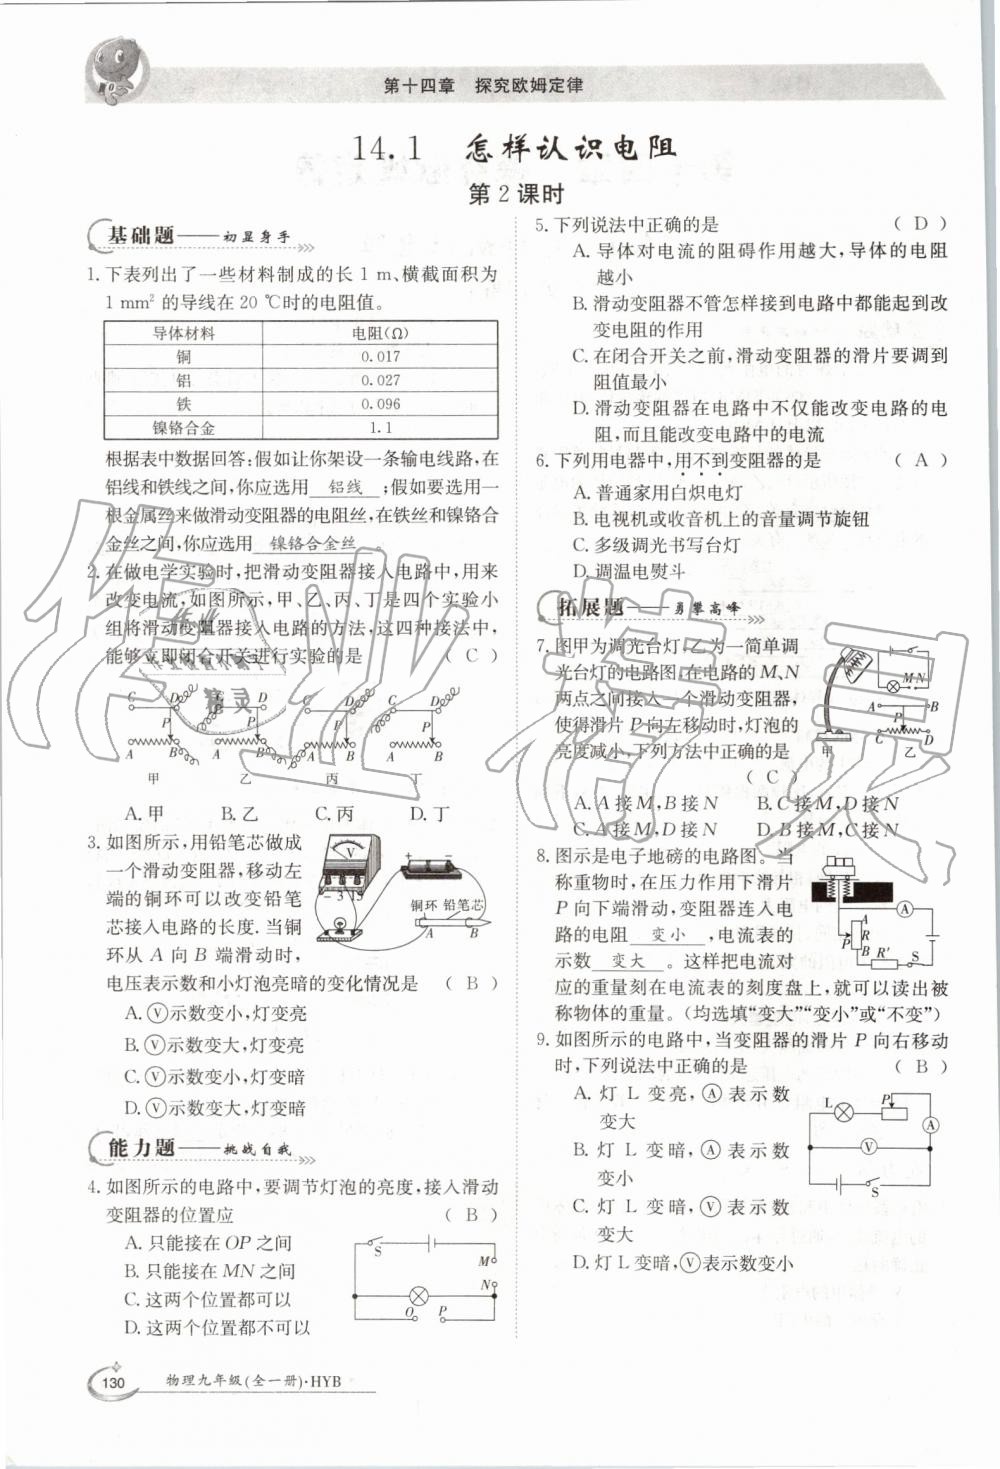 第十四章 探究欧姆定律
14.1 怎样认识电阻
第2课时
基础题——初显身手
1. 下表列出了一些材料制成的长 1 m、横截面积为
1 mm² 的导线在 20 ℃时的电阻值。
导体材料 电阻(Ω)
铜 0.017
铝 0.027
铁 0.096
镍铬合金 1.1
根据表中数据回答:假如让你架设一条输电线路,在
铝线和铁线之间,你应选用 铝线 ;假如要选用一
根金属丝来做滑动变阻器的电阻丝,在铁丝和镍铬合
金丝之间,你应选用 镍铬合金丝
2. 在做电学实验时,把滑动变阻器接入电路中,用来
改变电流,如图所示,甲、乙、丙、丁是四个实验小
组将滑动变阻器接入电路的方法,这四种接法中,
能够立即闭合开关进行实验的是 ( C )
C D C D C D C D
P P P P
A B A B A B A B
甲 乙 丙 丁
A. 甲 B. 乙 C. 丙 D. 丁
3. 如图所示,用铅笔芯做成
一个滑动变阻器,移动左
端的铜环可以改变铅笔
芯接入电路的长度. 当铜
环从 A 向 B 端滑动时,
电压表示数和小灯泡亮暗的变化情况是 ( B )
V
− 3 15
+ −
铜环 铅笔芯
A B
A. Ⓥ示数变小,灯变亮
B. Ⓥ示数变大,灯变亮
C. Ⓥ示数变小,灯变暗
D. Ⓥ示数变大,灯变暗
能力题——挑战自我
4. 如图所示的电路中,要调节灯泡的亮度,接入滑动
变阻器的位置应 ( B )
A. 只能接在 OP 之间
B. 只能接在 MN 之间
C. 这两个位置都可以
D. 这两个位置都不可以
S
M
N
O P
130 物理九年级(全一册)·HYB
5. 下列说法中正确的是 ( D )
A. 导体对电流的阻碍作用越大,导体的电阻
越小
B. 滑动变阻器不管怎样接到电路中都能起到改
变电阻的作用
C. 在闭合开关之前,滑动变阻器的滑片要调到
阻值最小
D. 滑动变阻器在电路中不仅能改变电路的电
阻,而且能改变电路中的电流
6. 下列用电器中,用不到变阻器的是 ( A )
A. 普通家用白炽电灯
B. 电视机或收音机上的音量调节旋钮
C. 多级调光书写台灯
D. 调温电熨斗
拓展题——勇攀高峰
7. 图甲为调光台灯,乙为一简单调
光台灯的电路图,在电路的 M、N
两点之间接入一个滑动变阻器,
使得滑片 P 向左移动时,灯泡的
亮度减小,下列方法中正确的是
( C )
M N
A B
P
C D
甲 乙
A. A 接 M,B 接 N B. C 接 M,D 接 N
C. A 接 M,D 接 N D. B 接 M,C 接 N
8. 图示是电子地磅的电路图。当
称重物时,在压力作用下滑片
P 向下端滑动,变阻器连入电
路的电阻 变小 ,电流表的
示数 变大 。这样把电流对
应的重量刻在电流表的刻度盘上,就可以读出被
称物体的重量。(均选填“变大”“变小”或“不变”)
A
A
P R
B R′ S
9. 如图所示的电路中,当变阻器的滑片 P 向右移动
时,下列说法中正确的是 ( B )
A. 灯 L 变亮,Ⓐ表示数
变大
B. 灯 L 变暗,Ⓐ表示数
变小
C. 灯 L 变暗,Ⓥ表示数
变大
D. 灯 L 变暗,Ⓥ表示数变小
L P
A
V
S
作业精灵
作业
精灵